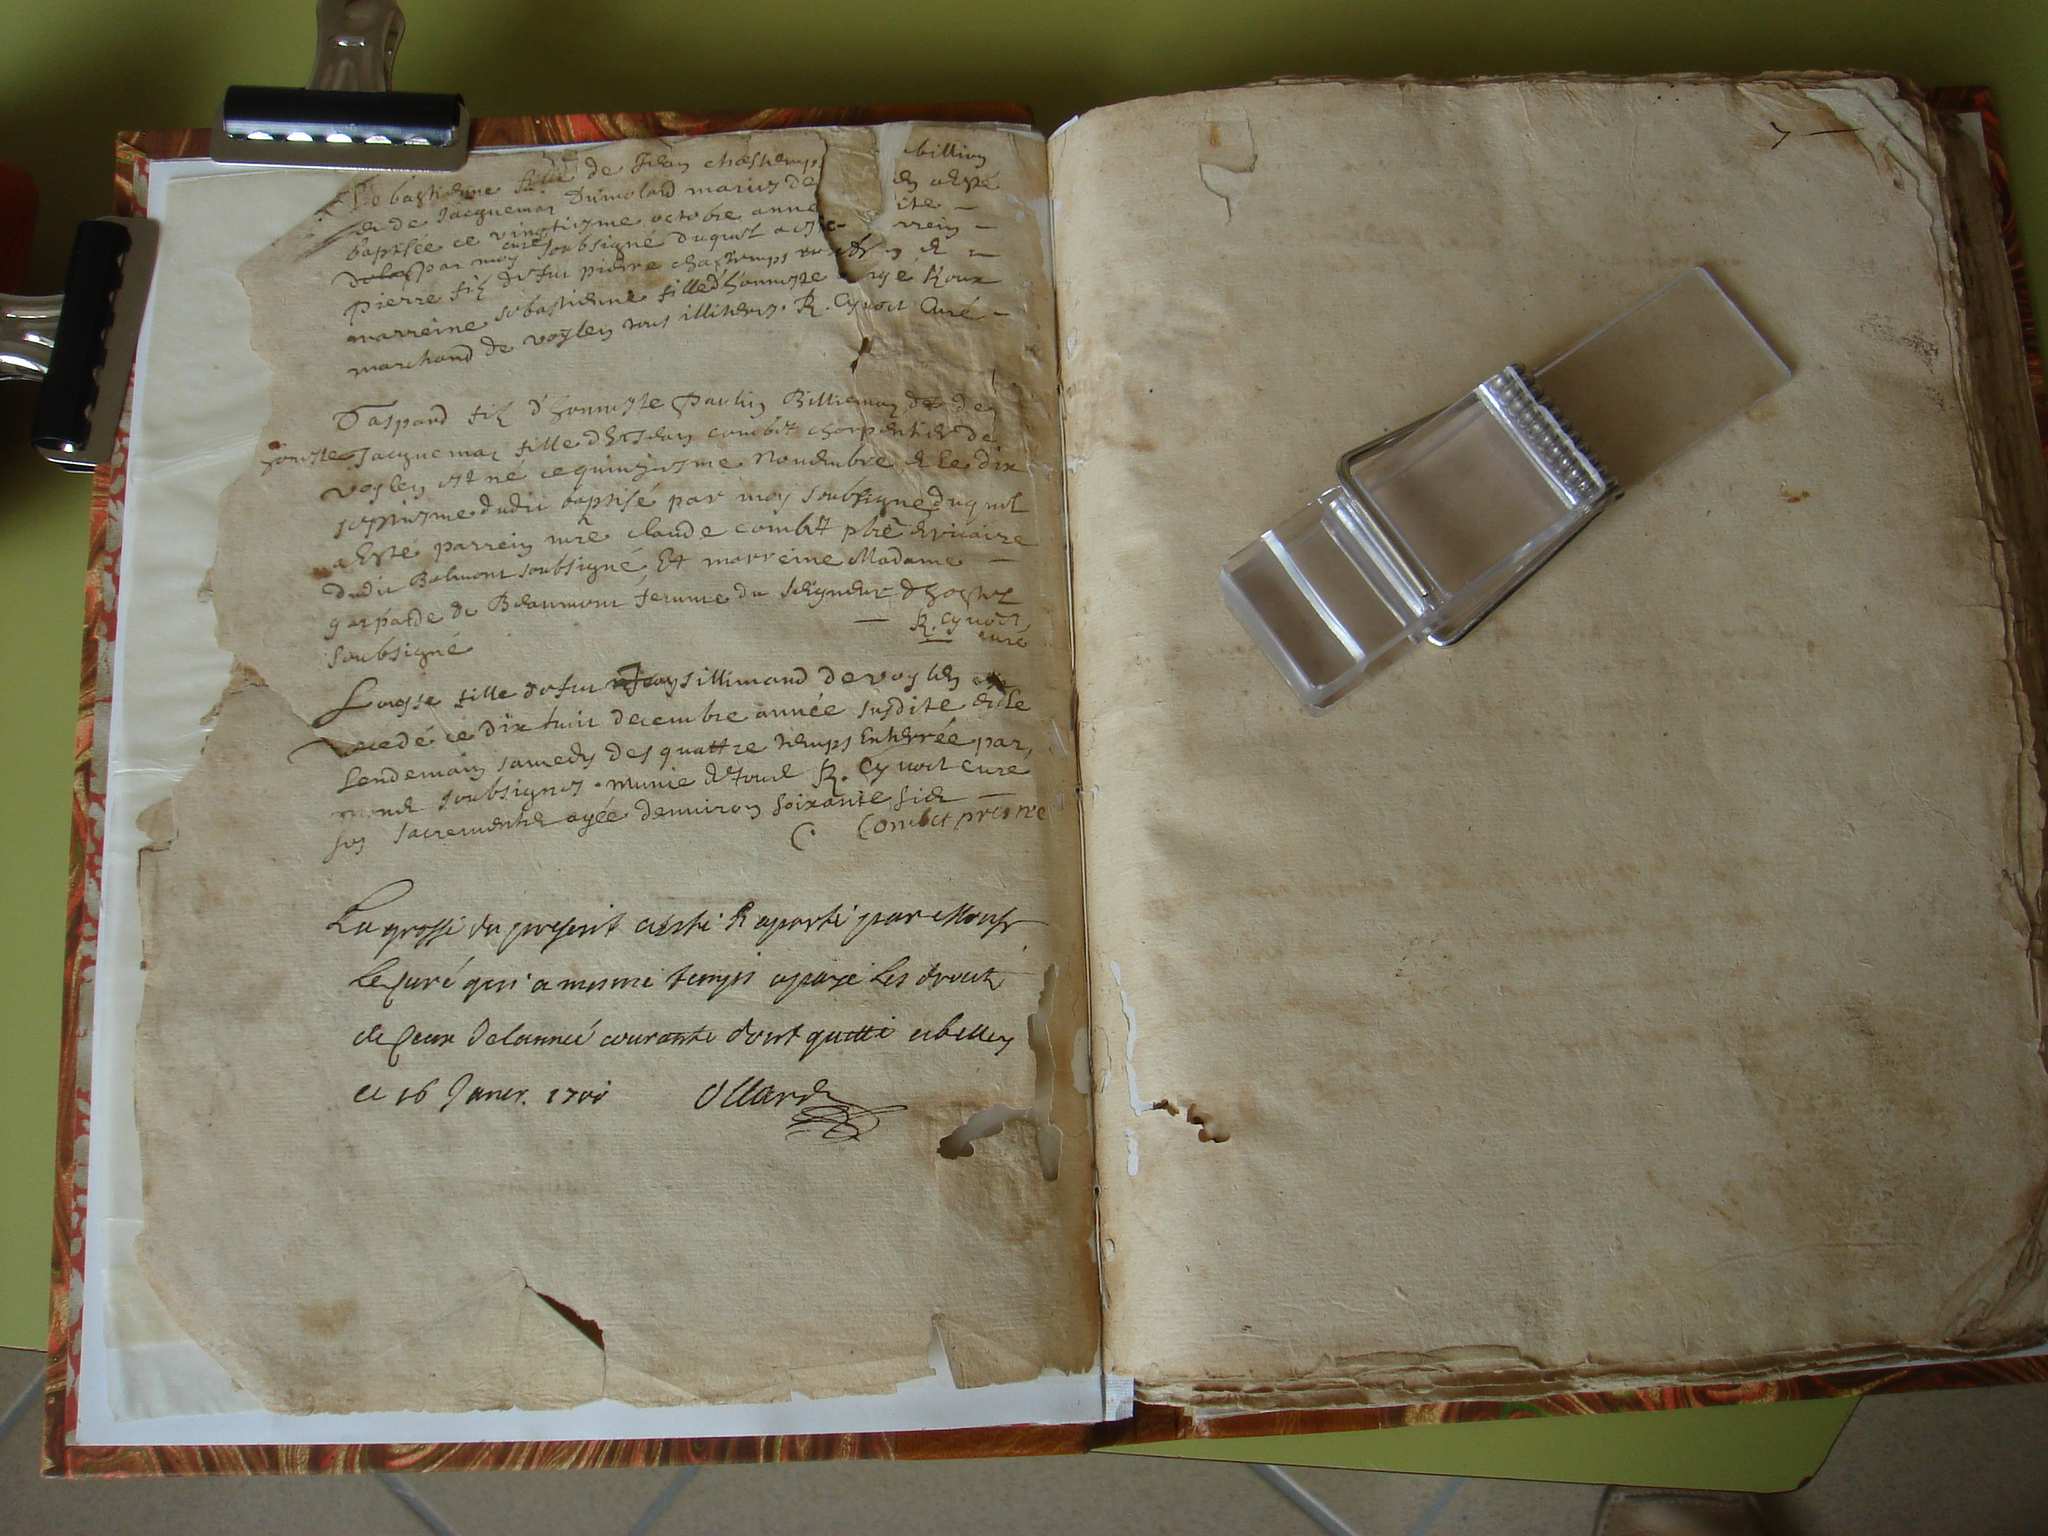 Sebastienne fille de Jean chastemps billion
et de Jacquemaz Dumolard mariez de a esté
baptisée ce vingtiesme octobre anné ite
par moy curé soubsigné duquel a esté vrein
Pierre filz de feu pierre chastemps et
marreine sebastienne fille d'honneste Roux
marchand de voglen tous illiterez. R. Cynoct Curé
Gaspard filz d'honneste Paulin Billiemaz de
honneste Jacquemaz fille de Jean combet charpentier de
voglen est né ce quinziesme Novembre et le dix
septiesme dudit baptisé par moy soubsigné duquel
a esté parrein mre claude combet pbre et vicaire
dudit Belmont soubsigné, Et marreine Madame
gasparde de Beaumont femme du seigneur d'hostel
soubsigné R. Cynoct curé
Loyse fille de feu sillimand de voglen
decedé ce dix huit decembre année susdite et le
lendemain samedy des quattre temps Enterrée par
soubsignez munie de tout R. Cynoct Curé
ses sacrements agée d'environ soixante
C. Combet prestre
La grosse du present a esté R aporté par Monsr
le Curé qui a mesme temps a payé les droits
de Ceux de lannée courante dont quitte a belley
ce 16 Janvr. 1701 Ollard
7